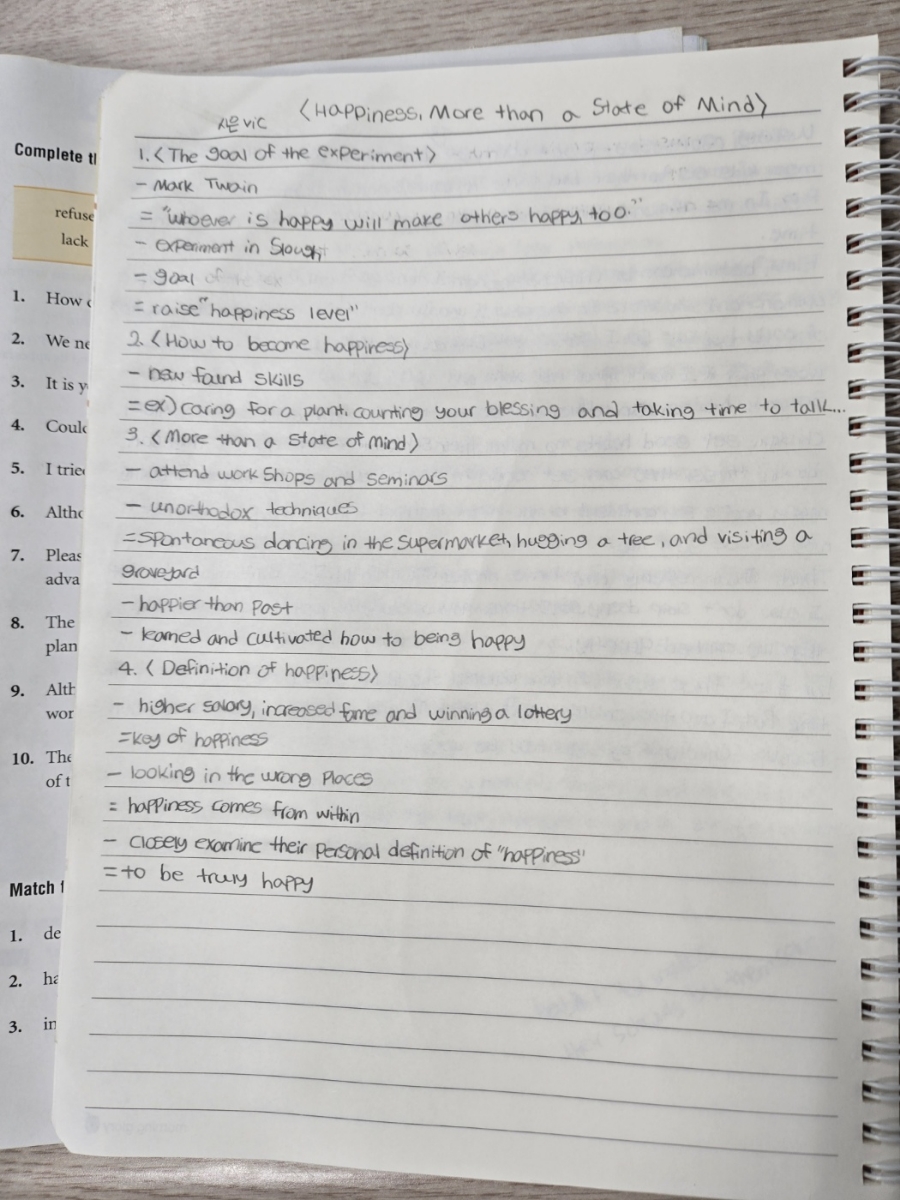 <Happiness, More than a State of Mind>
시은 vic
1. <The goal of the experiment>
- Mark Twain
= "whoever is happy will make others happy, too."
- experiment in Slought
= goal of the ex
= raise "happiness level"
2. <How to become happiness>
- new found skills
= ex) caring for a plant, counting your blessing and taking time to talk...
3. <More than a State of Mind>
- attend work shops and seminars
- unorthodox techniques
= spontaneous dancing in the supermarket, hugging a tree, and visiting a
graveyard
- happier than past
- learned and cultivated how to being happy
4. <Definition of happiness>
- higher salary, increased fame and winning a lottery
= key of happiness
- looking in the wrong places
= happiness comes from within
- closely examine their personal definition of "happiness"
= to be truly happy
Complete
refuse
lack
1. How
2. We ne
3. It is y
4. Could
5. I tried
6. Altho
7. Pleas
adva
8. The
plan
9. Alth
wor
10. The
of t
Match
1. de
2. ha
3. in